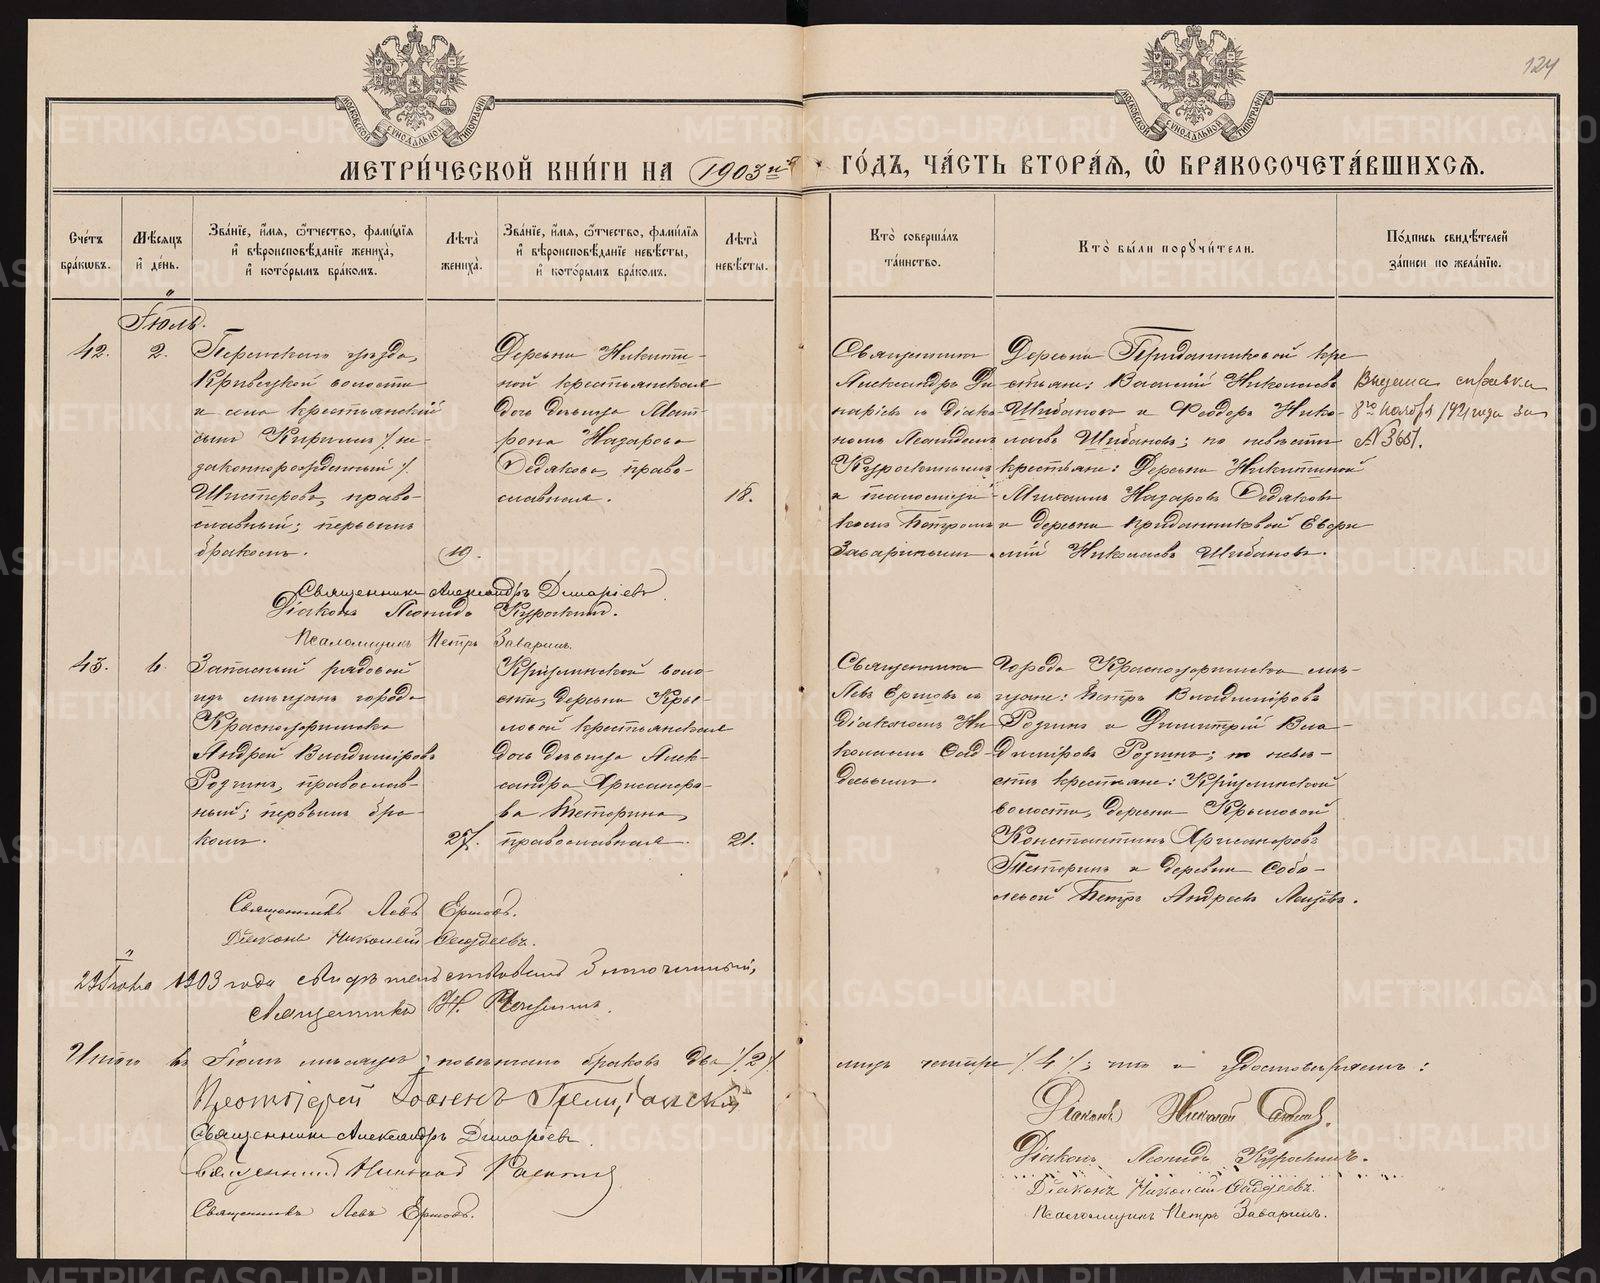 124
МОСКОВСКОЙ СѴНОДАЛЬНОЙ ТИПОГРАФІИ
МОСКОВСКОЙ СѴНОДАЛЬНОЙ ТИПОГРАФІИ
МЕТРИ́ЧЕСКОЙ КНИ́ГИ НА 1903й ГО́ДЪ, ЧА́СТЬ ВТОРА́Я, Ѽ БРАКОСОЧЕТА́ВШИХСЯ.
Сче́тъ бра́кωвъ.
Мѣ́сяцъ и҆ де́нь.
Зва́нїе, и҆́мя, ѻ҆́тчество, фами́лїя и҆ вѣроисповѣ́данїе жениха̀, и҆ кото́рымъ бра́комъ.
Лѣта̀ жениха̀.
Зва́нїе, и҆́мя, ѻ҆́тчество, фами́лїя и҆ вѣроисповѣ́данїе невѣ́сты, и҆ кото́рымъ бра́комъ.
Лѣта̀ невѣ́сты.
Кто̀ соверша́лъ та́инство.
Кто̀ бы́ли порꙋчи́тели.
По́дпись свидѣ́телей за́писи по жела́нїю.
Іюль.
42.
2.
уѣзда,
волости
и села крестьянскій
сынъ Кириллъ /не-
законнорожденный/.
Шистеровъ, право-
славный; первымъ
бракомъ.
19.
Деревни Никити-
ной крестьянская
дочь дѣвица Мат-
рона Назарова
Федякова, право-
славная.
18.
Священникъ
Александръ Ди-
наріевъ съ діако-
номъ Леонидомъ
и псаломщи-
комъ Петромъ
Заваринымъ
Деревни Приданниковой кре-
стьяне: Василій Николаевъ
Шибановъ и Феодоръ Нико-
лаевъ Шибановъ; по невѣстѣ
крестьяне: Деревни Никитиной
Михаилъ Назаровъ Федяковъ
и деревни Приданниковой
Николаевъ Шибановъ.
Выдана справка
8го ноября 1921 года за
№ 3661.
Священникъ Александръ Динаріевъ
Діаконъ Леонидъ
Псаломщикъ Петръ Заваринъ.
43.
6.
Запасный рядовой
изъ мѣщанъ города
Красноуфимска
Андрей Владиміровъ
православ-
ный; первымъ бра-
комъ.
27.
Криулинской воло-
сти, деревни Кры-
ловой крестьянская
дочь дѣвица Алек-
сандра Хрисанфо-
ва Тетерина,
православная.
21.
Священникъ
Левъ Ершовъ съ
діакономъ Ни-
колаемъ
Города Красноуфимска мѣ-
щане: Петръ Владиміровъ
и Димитрій Вла-
диміровъ по невѣ-
стѣ крестьяне: Криулинской
волости, деревни Крыловой
Константинъ Хрисанфовъ
Тетеринъ и деревни Собо-
левой Петръ Андреевъ
Священникъ Левъ Ершовъ.
Діаконъ Николай
1903 года свидѣтельствовалъ
Священникъ Н.
Итого въ Іюлѣ мѣсяцѣ повѣнчано браковъ два /2/
лицъ четыре /4/; что и удостовѣряемъ:
Протоіерей
Священникъ Александръ Динаріевъ
Священникъ Николай
Священникъ Левъ Ершовъ.
Діаконъ Николай
Діаконъ Леонидъ
Діаконъ Николай
Псаломщикъ Петръ Заваринъ.
METRIKI.GASO-URAL.RU